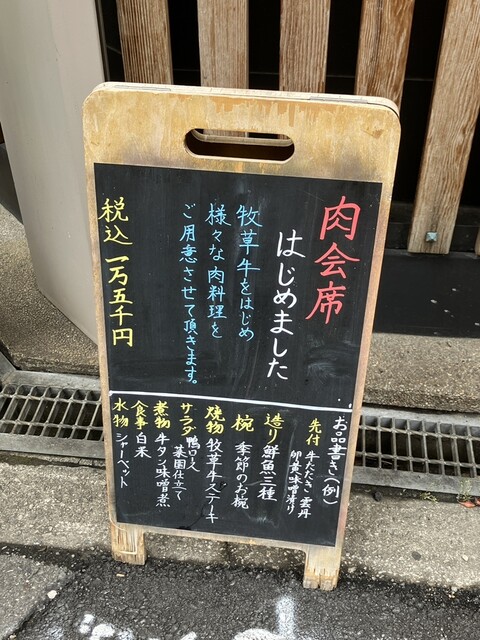 肉会席
はじめました
牧草牛をはじめ
様々な肉料理を
ご用意させて頂きます。
税込 一万五千円
お品書き(例)
先付 牛たたき 雲丹
卵黄味噌漬け
造り 鮮魚三種
椀 季節のお椀
焼物 牧草牛ステーキ
サラダ 鴨ロース
菜園仕立て
煮物 牛タン味噌煮
食事 白米
水物 シャーベット